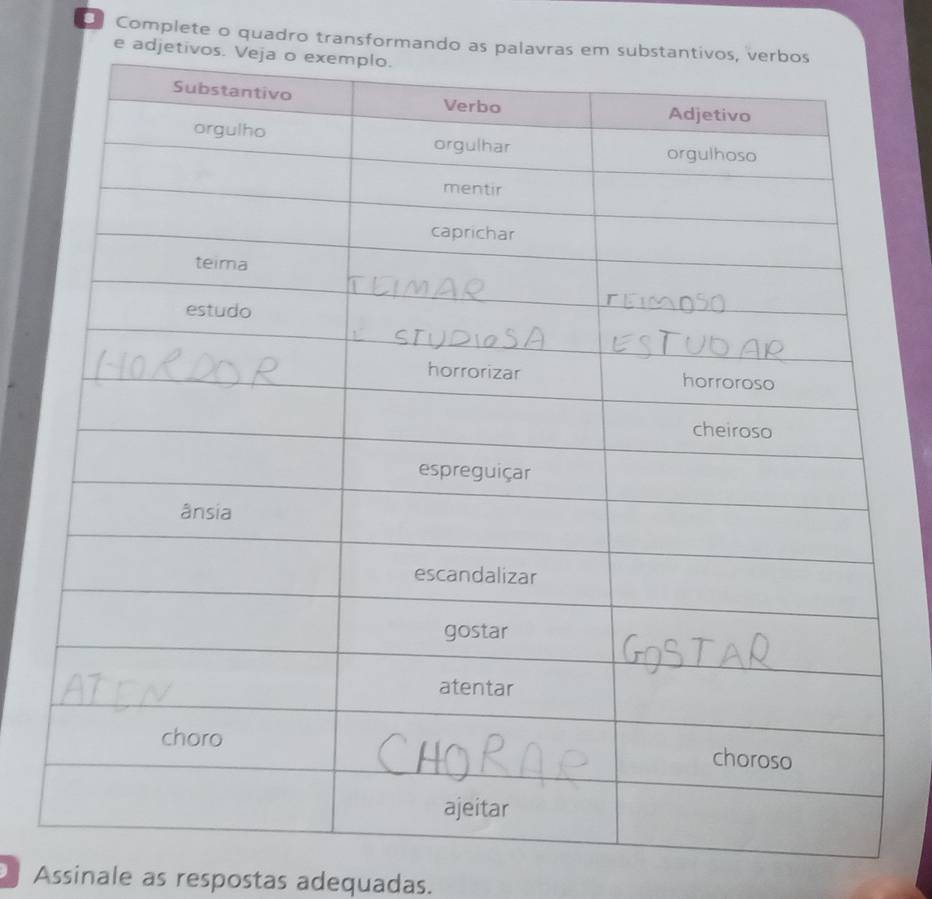 8 Complete o quadro transformando as palavras em substantivos, verbos
e adjetivos. Veja o exemplo.
Substantivo Verbo Adjetivo
orgulho orgulhar orgulhoso
mentir
caprichar
teima TEIMAR TEIMOSO
estudo ESTUDIOSA ESTUDAR
HORDOR horrorizar horroroso
cheiroso
espreguiçar
ânsia
escandalizar
gostar GOSTAR
ATEN atentar
choro CHORAR choroso
ajeitar
Assinale as respostas adequadas.